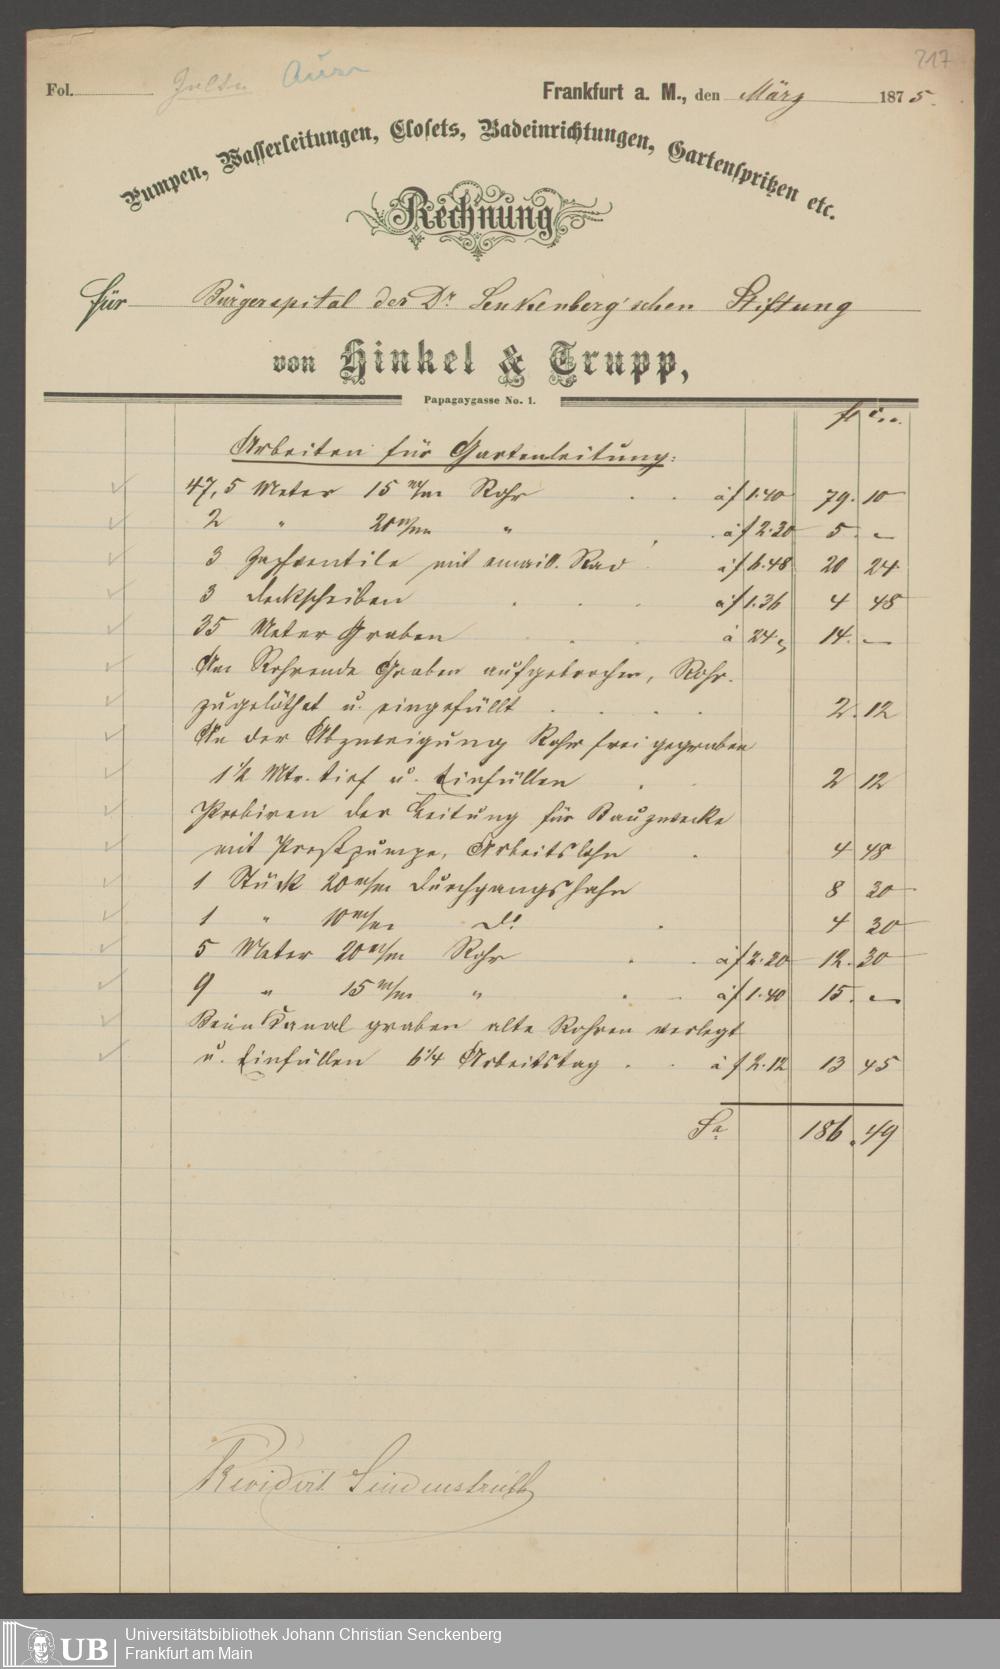 217
Fol.
Frankfurt a. M., den März 1875.
Pumpen, Wasserleitungen, Closets, Badeinrichtungen, Gartenspritzen etc.
Rechnung
für Bürgerspital der Dr. Senkenberg'schen Stiftung
von Hinkel & Trupp,
Papagaygasse No. 1.
Arbeiten für Gartenleitung:
47,5 Meter 15 m/m Rohr . . à f 1.40 79. 10
2 " 20 m/m " . . à f 2.30 5. –
3 Zapfventile mit emaill. Rad à f 6.48 20 24
3 Deckscheiben . . . à f 1.36 4 48
35 Meter Graben . . à 24 14. –
Am Rohrende Graben aufgebrochen, Rohr
zugelöthet u. eingefüllt . . . . 2. 12
An der Abzweigung Rohr frei gegraben
1½ Mtr. tief u. Einfüllen . . 2 12
Probiren der Leitung für Bauzwecke
mit Preßpumpe, Arbeitslohn . 4 48
1 Stück 20 m/m Durchgangshahn 8 30
1 " 10 m/m do . 4 30
5 Meter 20 m/m Rohr . . à f 2.30 12. 30
9 " 15 m/m " . . à f 1.40 15. –
Beim Kanal graben alte Rohren verlegt
u. Einfüllen 6¼ Arbeitstag . . à f 2.12 13 45
Sa. 186. 49
Revidirt Lindenstruth
UB
Universitätsbibliothek Johann Christian Senckenberg
Frankfurt am Main